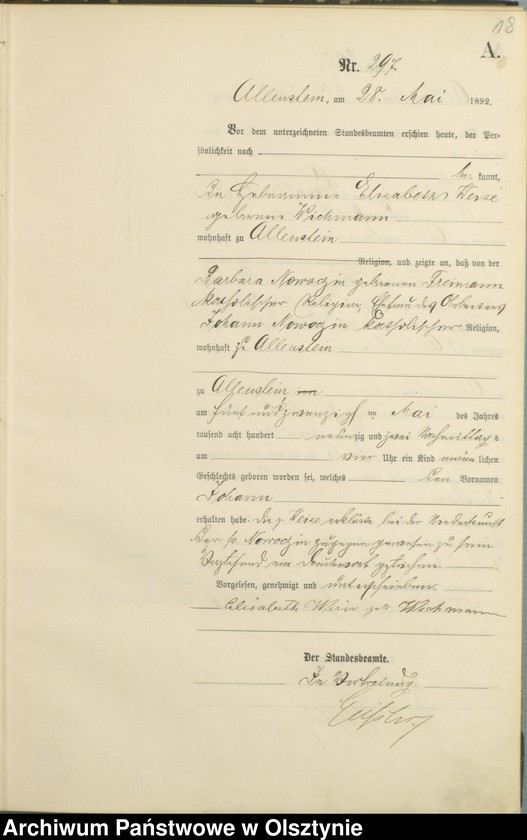 18
A.
Nr. 297.
Allenstein, am 28. Mai 1892.
Vor dem unterzeichneten Standesbeamten erschien heute, der Per-
sönlichkeit nach
be kannt,
die Hebeamme Elisabeth Weise
geborene Wichmann
wohnhaft zu Allenstein
Religion, und zeigte an, daß von der
Barbara Nowozin geborenen Freimann
katholischer Religion, Ehefrau des Arbeiters
Johann Nowozin katholischer Religion,
wohnhaft zu Allenstein
zu Allenstein
am fünf und zwanzigsten Mai des Jahres
tausend acht hundert neunzig und zwei Nachmittags
um vier Uhr ein Kind männ lichen
Geschlechts geboren worden sei, welches den Vornamen
Johann
erhalten habe. Die p. Weise erklärte bei der Niederkunft
der p. Nowozin zugegen gewesen zu sein
Vorstehend ein Druckwort gestrichen
Vorgelesen, genehmigt und unterschrieben
Elisabeth Weise geb Wichmann
Der Standesbeamte.
In Vertretung.
Archiwum Państwowe w Olsztynie